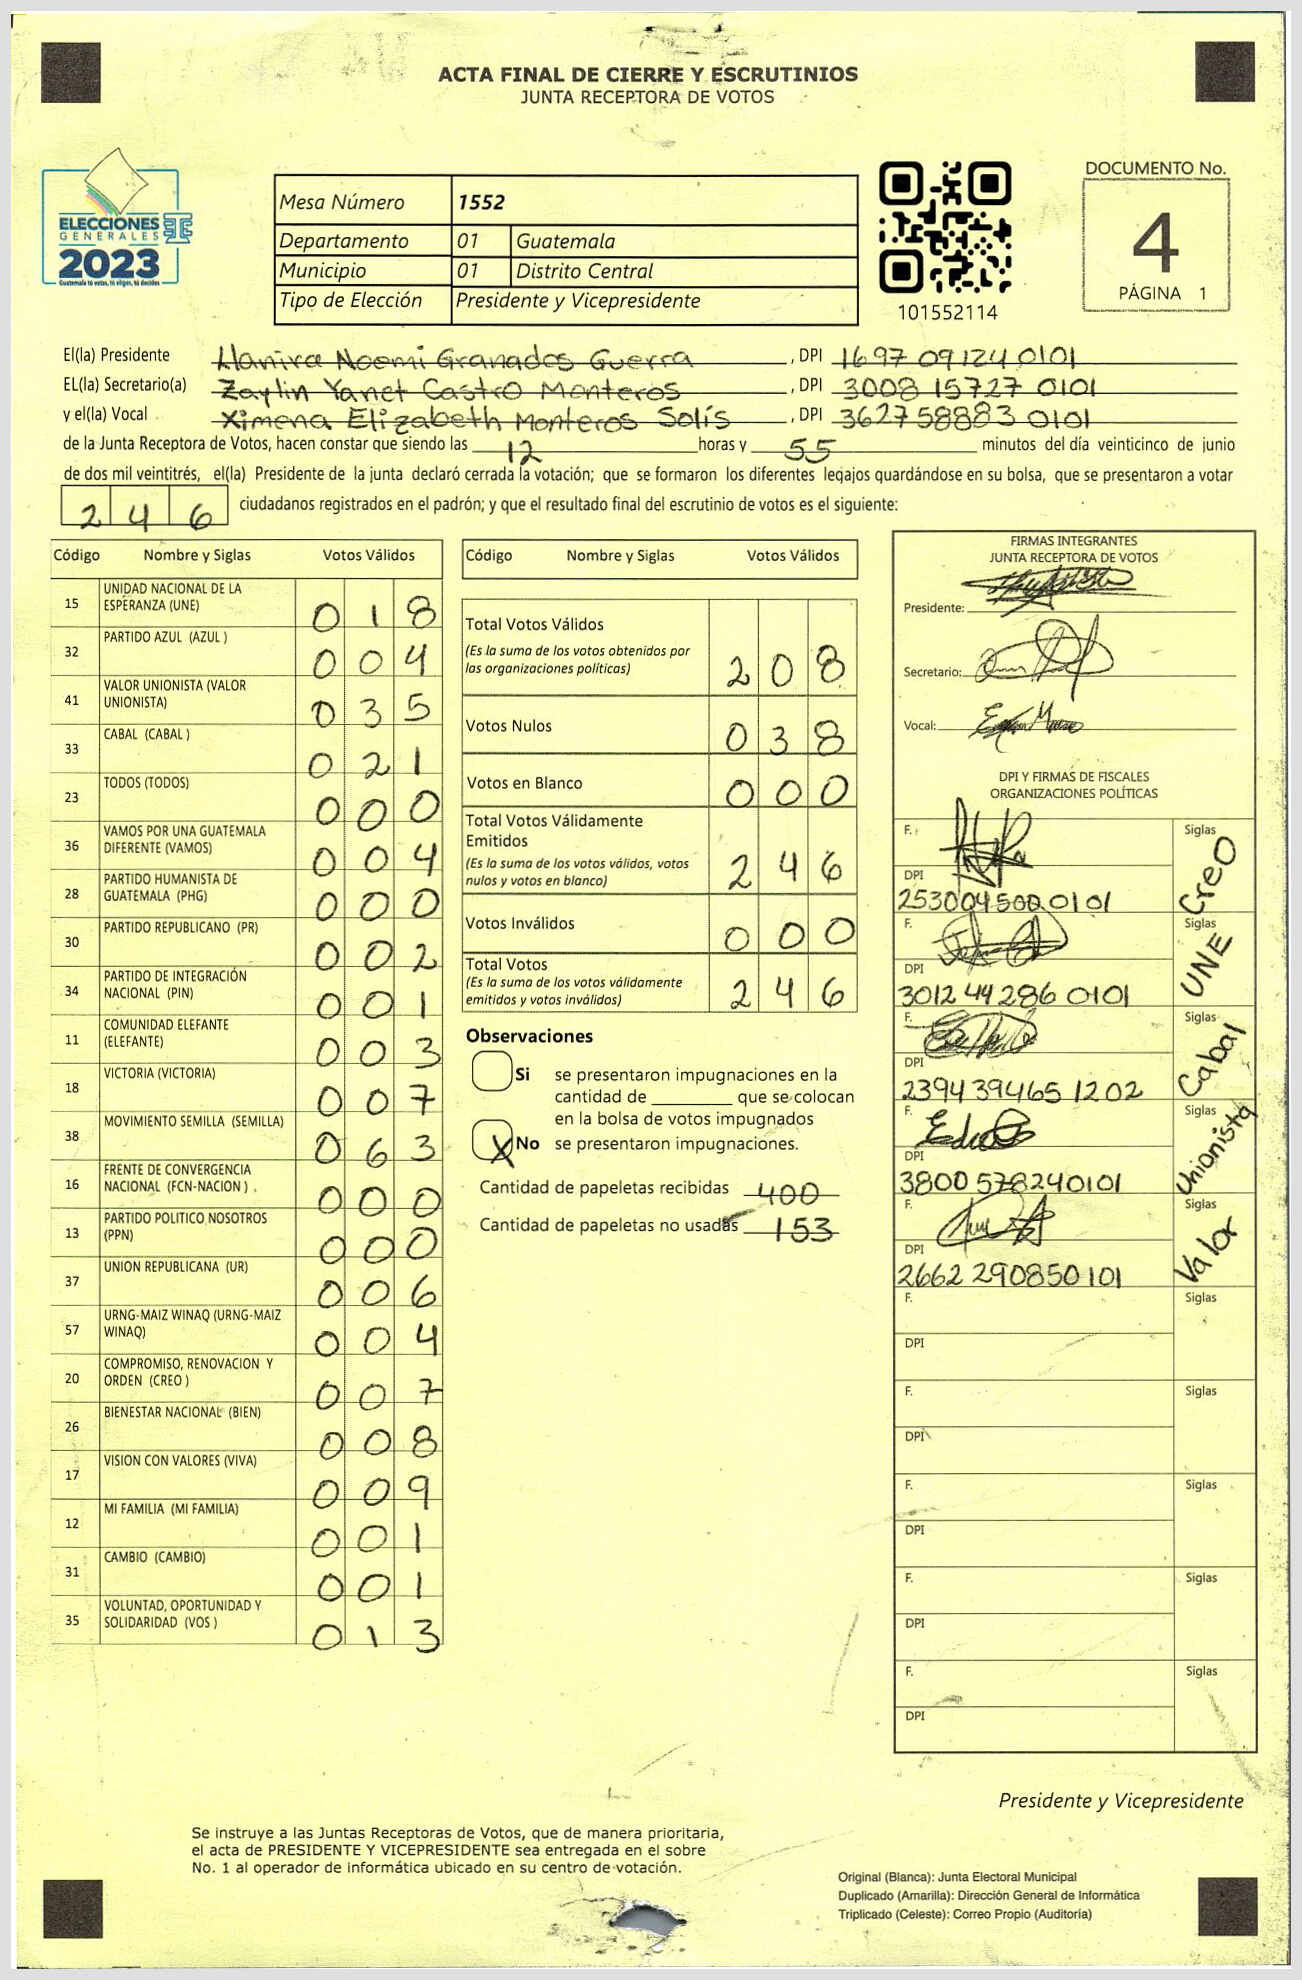 ACTA FINAL DE CIERRE Y ESCRUTINIOS
JUNTA RECEPTORA DE VOTOS
ELECCIONES
GENERALES
2023
Guatemala tú votas, tú eliges, tú decides
Mesa Número 1552
Departamento 01 Guatemala
Municipio 01 Distrito Central
Tipo de Elección Presidente y Vicepresidente
101552114
DOCUMENTO No.
4
PÁGINA 1
El(la) Presidente Noemi Granados Guerra, DPI 1697 09124 0101
EL(la) Secretario(a) Zaylin Yanet Castro Monteros, DPI 3008 15727 0101
y el(la) Vocal Ximena Elizabeth Monteros Solís, DPI 3627 58883 0101
de la Junta Receptora de Votos, hacen constar que siendo las 12 horas y 55 minutos del día veinticinco de junio
de dos mil veintitrés, el(la) Presidente de la junta declaró cerrada la votación; que se formaron los diferentes legajos guardándose en su bolsa, que se presentaron a votar
246 ciudadanos registrados en el padrón; y que el resultado final del escrutinio de votos es el siguiente:
Código Nombre y Siglas Votos Válidos
15 UNIDAD NACIONAL DE LA ESPERANZA (UNE) 018
32 PARTIDO AZUL (AZUL ) 004
41 VALOR UNIONISTA (VALOR UNIONISTA) 035
33 CABAL (CABAL ) 021
23 TODOS (TODOS) 000
36 VAMOS POR UNA GUATEMALA DIFERENTE (VAMOS) 004
28 PARTIDO HUMANISTA DE GUATEMALA (PHG) 000
30 PARTIDO REPUBLICANO (PR) 002
34 PARTIDO DE INTEGRACIÓN NACIONAL (PIN) 001
11 COMUNIDAD ELEFANTE (ELEFANTE) 003
18 VICTORIA (VICTORIA) 007
38 MOVIMIENTO SEMILLA (SEMILLA) 063
16 FRENTE DE CONVERGENCIA NACIONAL (FCN-NACION ) 000
13 PARTIDO POLITICO NOSOTROS (PPN) 000
37 UNION REPUBLICANA (UR) 006
57 URNG-MAIZ WINAQ (URNG-MAIZ WINAQ) 004
20 COMPROMISO, RENOVACION Y ORDEN (CREO ) 007
26 BIENESTAR NACIONAL (BIEN) 008
17 VISION CON VALORES (VIVA) 009
12 MI FAMILIA (MI FAMILIA) 001
31 CAMBIO (CAMBIO) 001
35 VOLUNTAD, OPORTUNIDAD Y SOLIDARIDAD (VOS ) 013
Código Nombre y Siglas Votos Válidos
Total Votos Válidos 208
(Es la suma de los votos obtenidos por
las organizaciones políticas)
Votos Nulos 038
Votos en Blanco 000
Total Votos Válidamente
Emitidos 246
(Es la suma de los votos válidos, votos
nulos y votos en blanco)
Votos Inválidos 000
Total Votos 246
(Es la suma de los votos válidamente
emitidos y votos inválidos)
Observaciones
Si se presentaron impugnaciones en la
cantidad de ________ que se colocan
en la bolsa de votos impugnados
X No se presentaron impugnaciones.
Cantidad de papeletas recibidas 400
Cantidad de papeletas no usadas 153
FIRMAS INTEGRANTES
JUNTA RECEPTORA DE VOTOS
Presidente:
Secretario:
Vocal:
DPI Y FIRMAS DE FISCALES
ORGANIZACIONES POLÍTICAS
F. Siglas Creo
DPI 253004500 0101
F. Siglas UNE
DPI 3012 44 286 0101
F. Siglas Cabal
DPI 2394 39465 1202
F. Siglas Unionista
DPI 3800 578240101
F. Siglas Valor
DPI 2662 290850101
F. Siglas
DPI
F. Siglas
DPI
F. Siglas
DPI
F. Siglas
DPI
F. Siglas
DPI
Presidente y Vicepresidente
Se instruye a las Juntas Receptoras de Votos, que de manera prioritaria,
el acta de PRESIDENTE Y VICEPRESIDENTE sea entregada en el sobre
No. 1 al operador de informática ubicado en su centro de votación.
Original (Blanca): Junta Electoral Municipal
Duplicado (Amarilla): Dirección General de Informática
Triplicado (Celeste): Correo Propio (Auditoría)